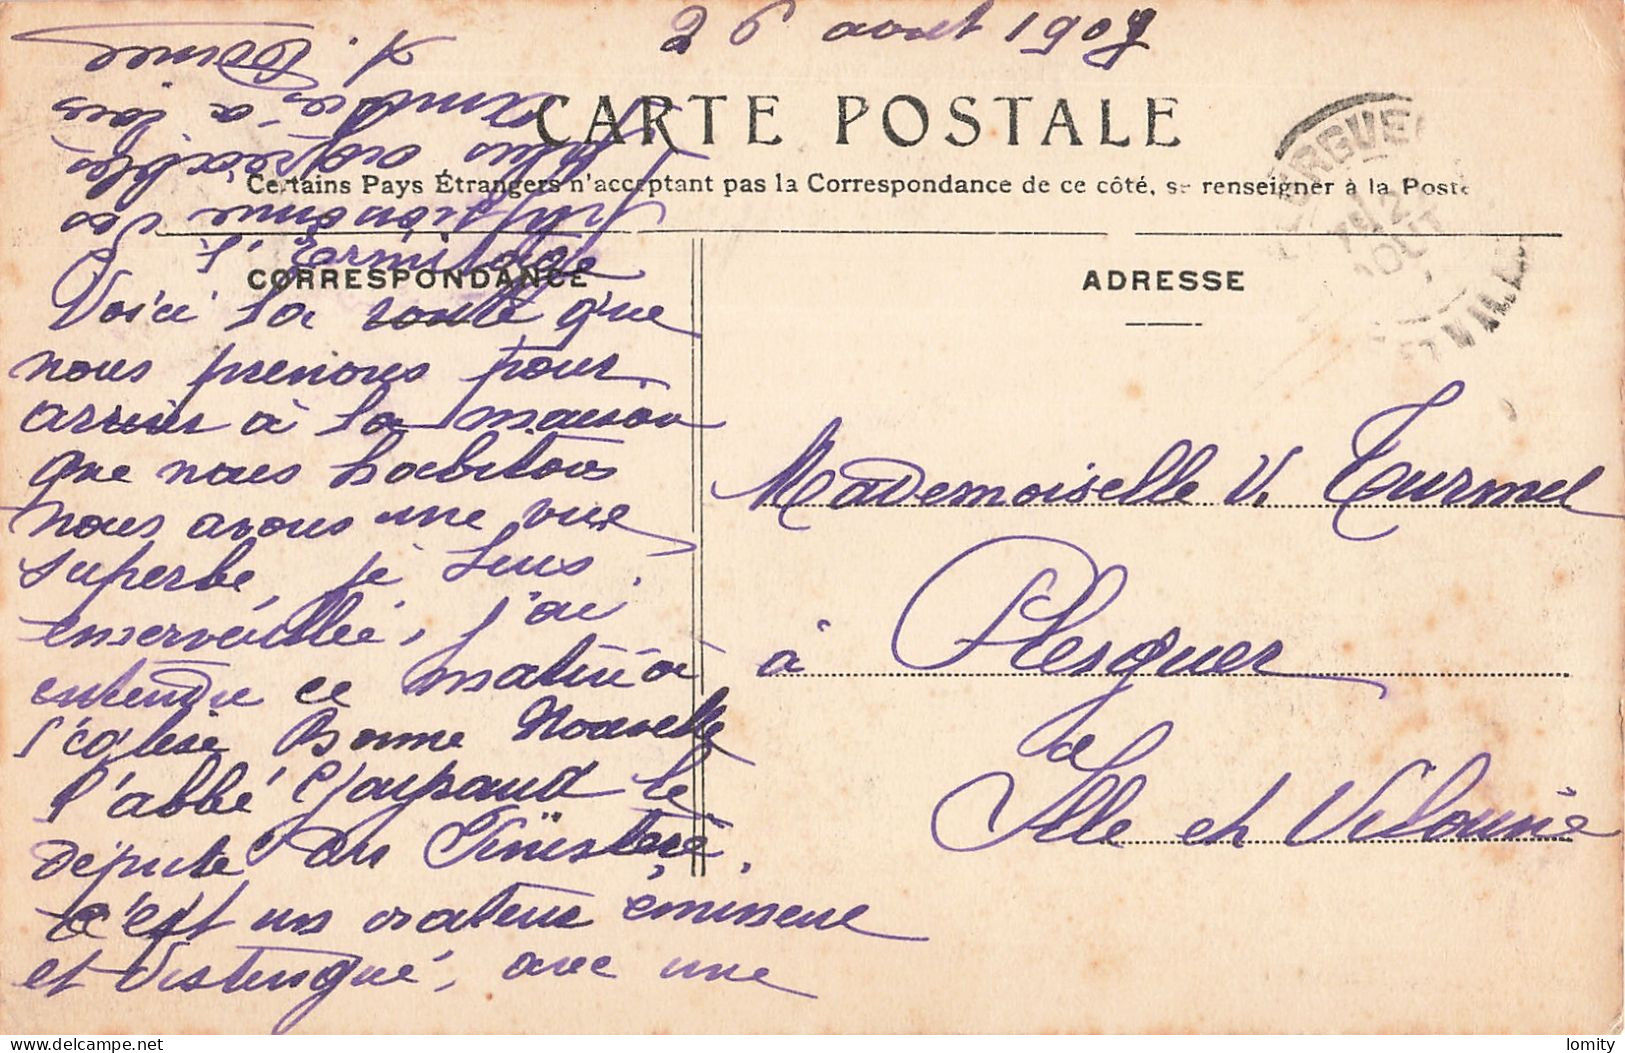 26 août 1907
CARTE POSTALE
Certains Pays Étrangers n'acceptant pas la Correspondance de ce côté, se renseigner à la Poste
CORRESPONDANCE
ADRESSE
Voici la route que
nous prenons pour
arriver à la maison
que nous habitons
nous avons une vue
superbe, je suis
emerveillée, j'ai
entendu ce matin à
l'église Bonne Nouvelle
l'abbé Gayraud le
député du Finistère
c'est un orateur éminent
et distingué, avec une
physionomie des
plus agréables
Amitiés à tous
l'Ermitage
Mademoiselle V. Turmel
à Plerguer
Ille et Vilaine
PLERGUER
AOUT
ET VILAINE
lomity